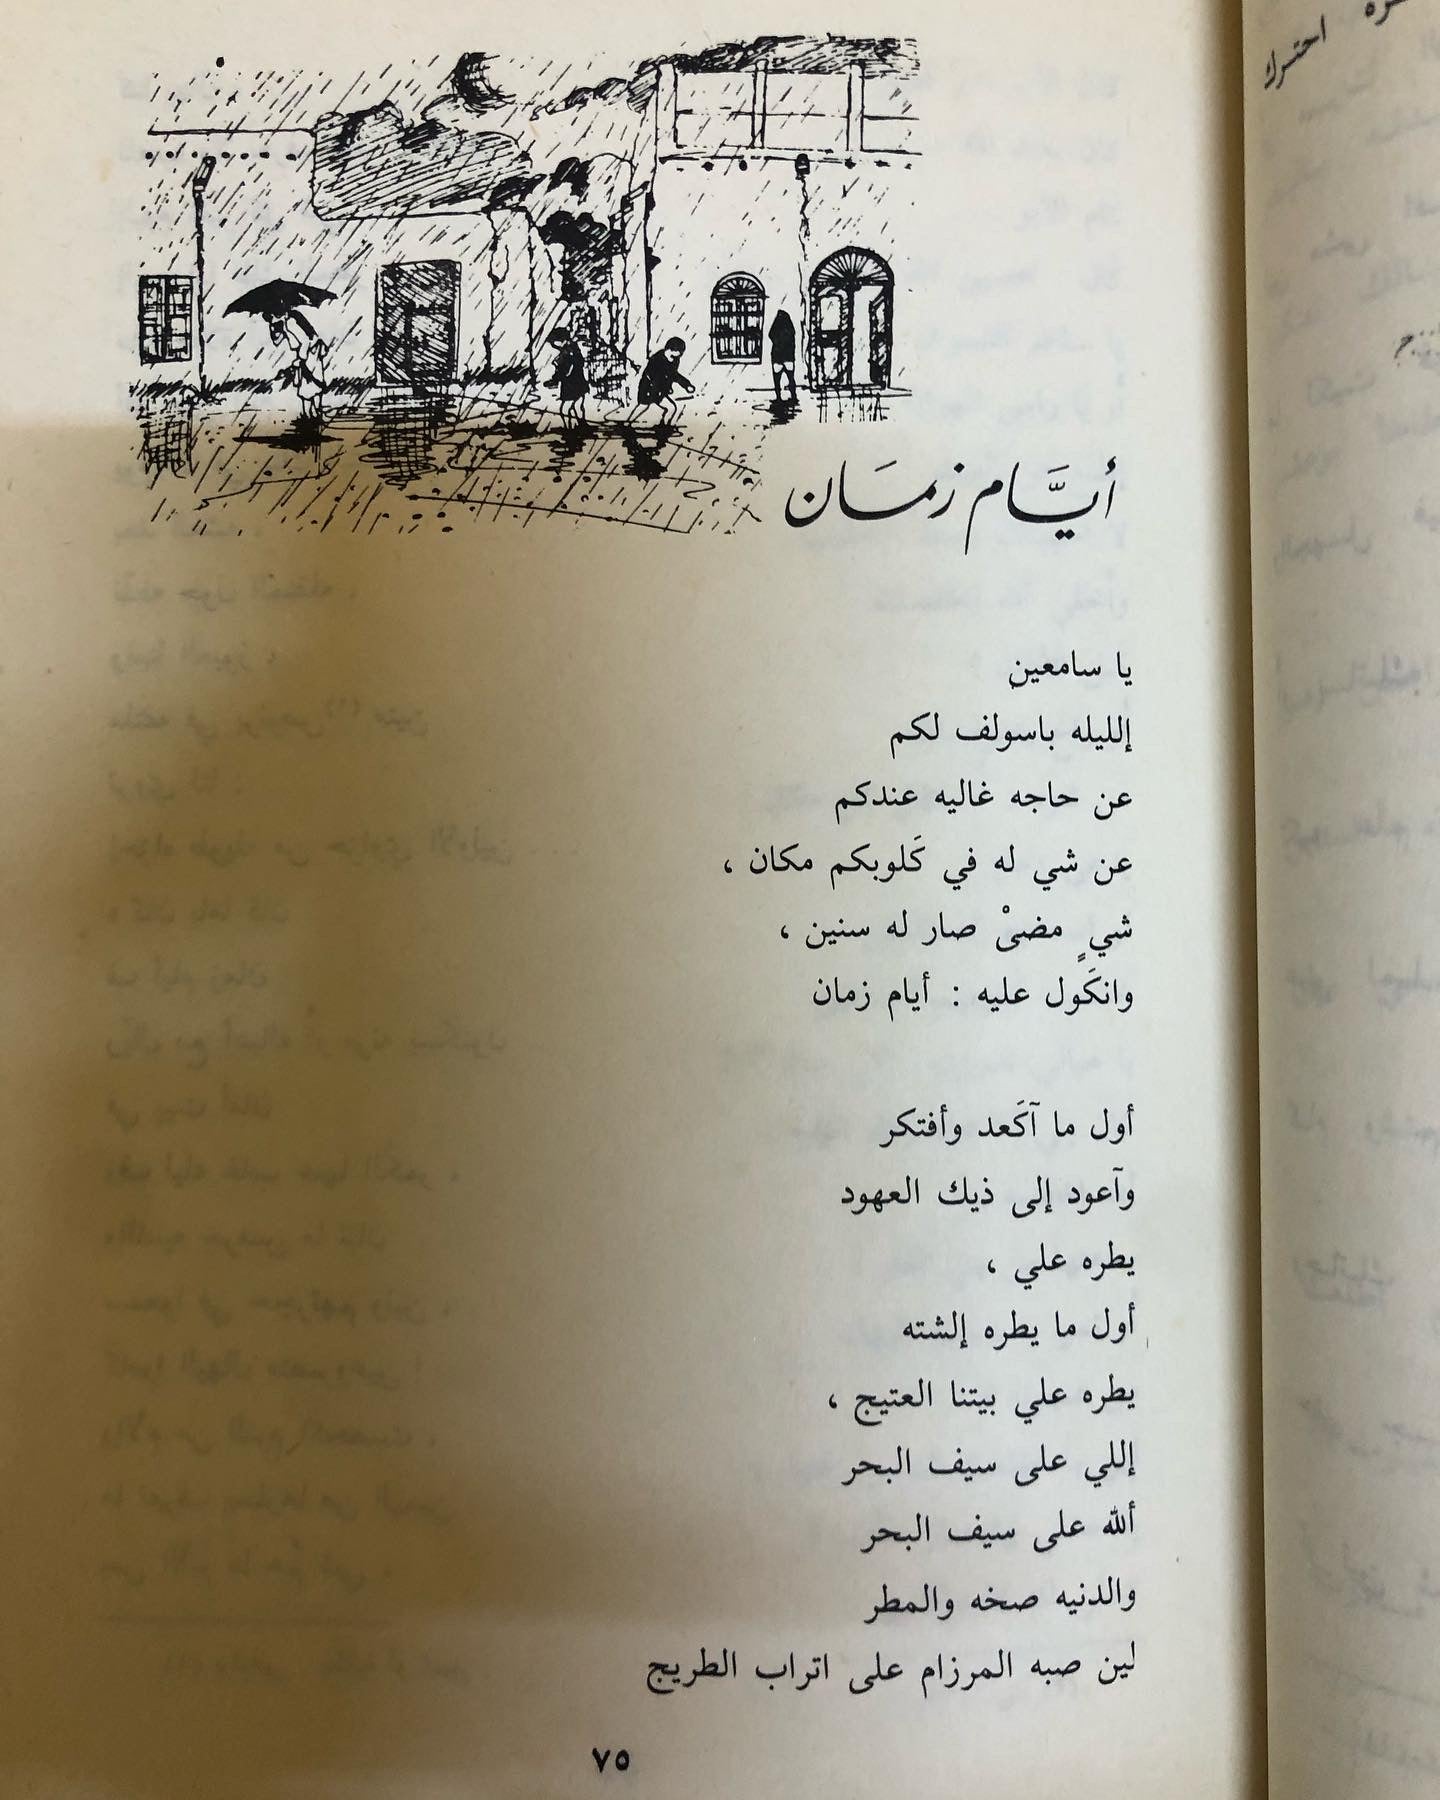 أيَّام زمَان
يا سامعين
إلليله باسولف لكم
عن حاجه غاليه عندكم
عن شي له في كَلوبكم مكان ،
شيٍ مضىْ صار له سنين ،
وانكَول عليه : أيام زمان
أول ما آكَعد وأفتكر
وآعود إلى ذيك العهود
يطره علي ،
أول ما يطره إلشته
يطره علي بيتنا العتيج ،
إللي على سيف البحر
ألله على سيف البحر
والدنيه صخه والمطر
لين صبه المرزام على اتراب الطريج
٧٥
احترك